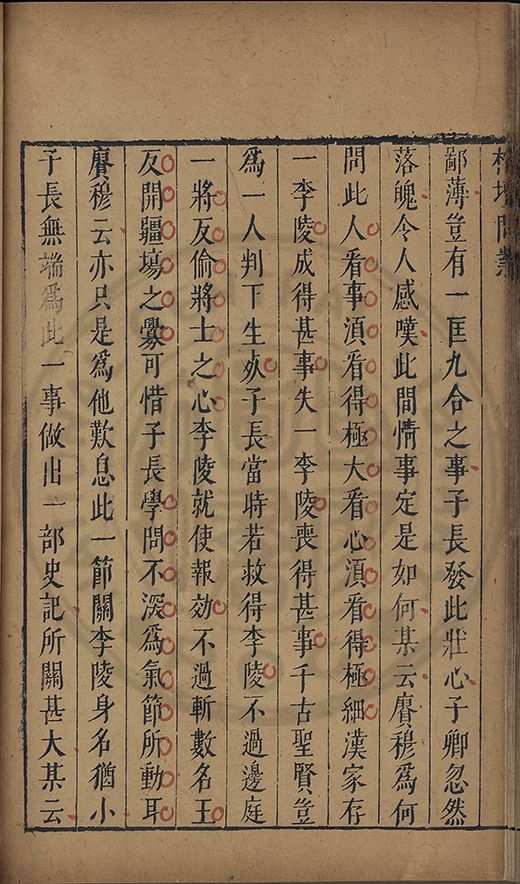 榕壇問業
鄙薄豈有一匡九合之事子長發此壯心子卿忽然
落魄令人感嘆此間情事定是如何某云賡穆爲何
問此人看事湏看得極大看心湏看得極細漢家存
一李陵成得甚事失一李陵喪得甚事千古聖賢豈
為一人判下生𣦸子長當時若救得李陵不過邊庭
一將反偷將士之心李陵就使報効不過斬數名王
反開疆場之釁可惜子長學問不深爲氣節所動耳
賡穆云亦只是爲他歎息此一節關李陵身名猶小
子長無端爲此一事做出一部史記所關甚大某云